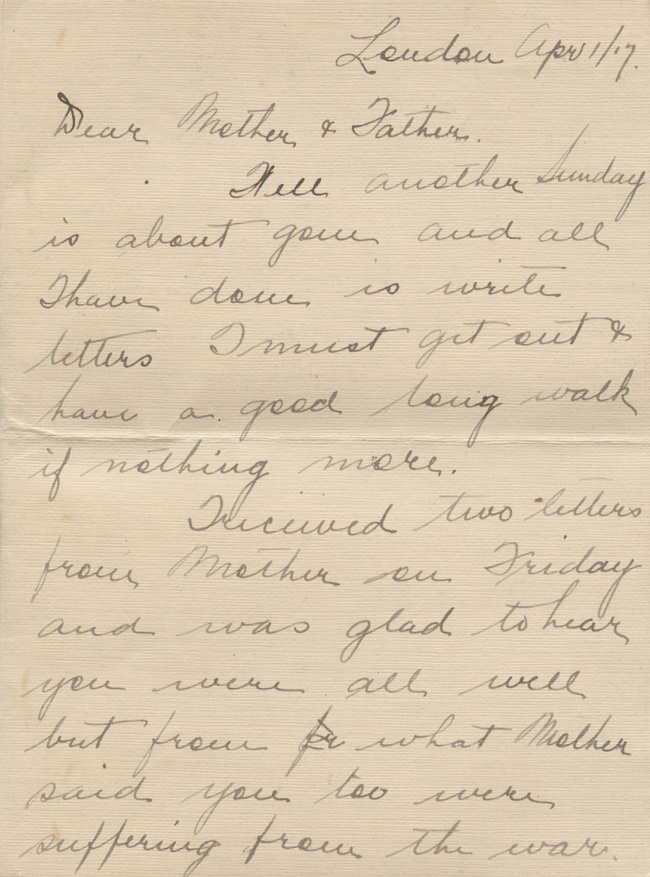 London Apr 1/17.
Dear Mother & Father.
Well another Sunday
is about gone and all
I have done is write
letters I must get out &
have a good long walk
if nothing more.
I received two letters
from Mother on Friday
and was glad to hear
you were all well
but from fr what Mother
said you too were
suffering from the war.